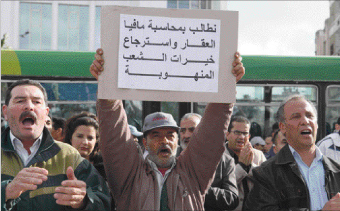 نطالب بمحاسبة مافيا
العقار واسترجاع
خيرات الشعب
المنهوبة